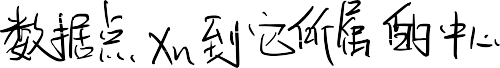 数据点xn到它所属的中心